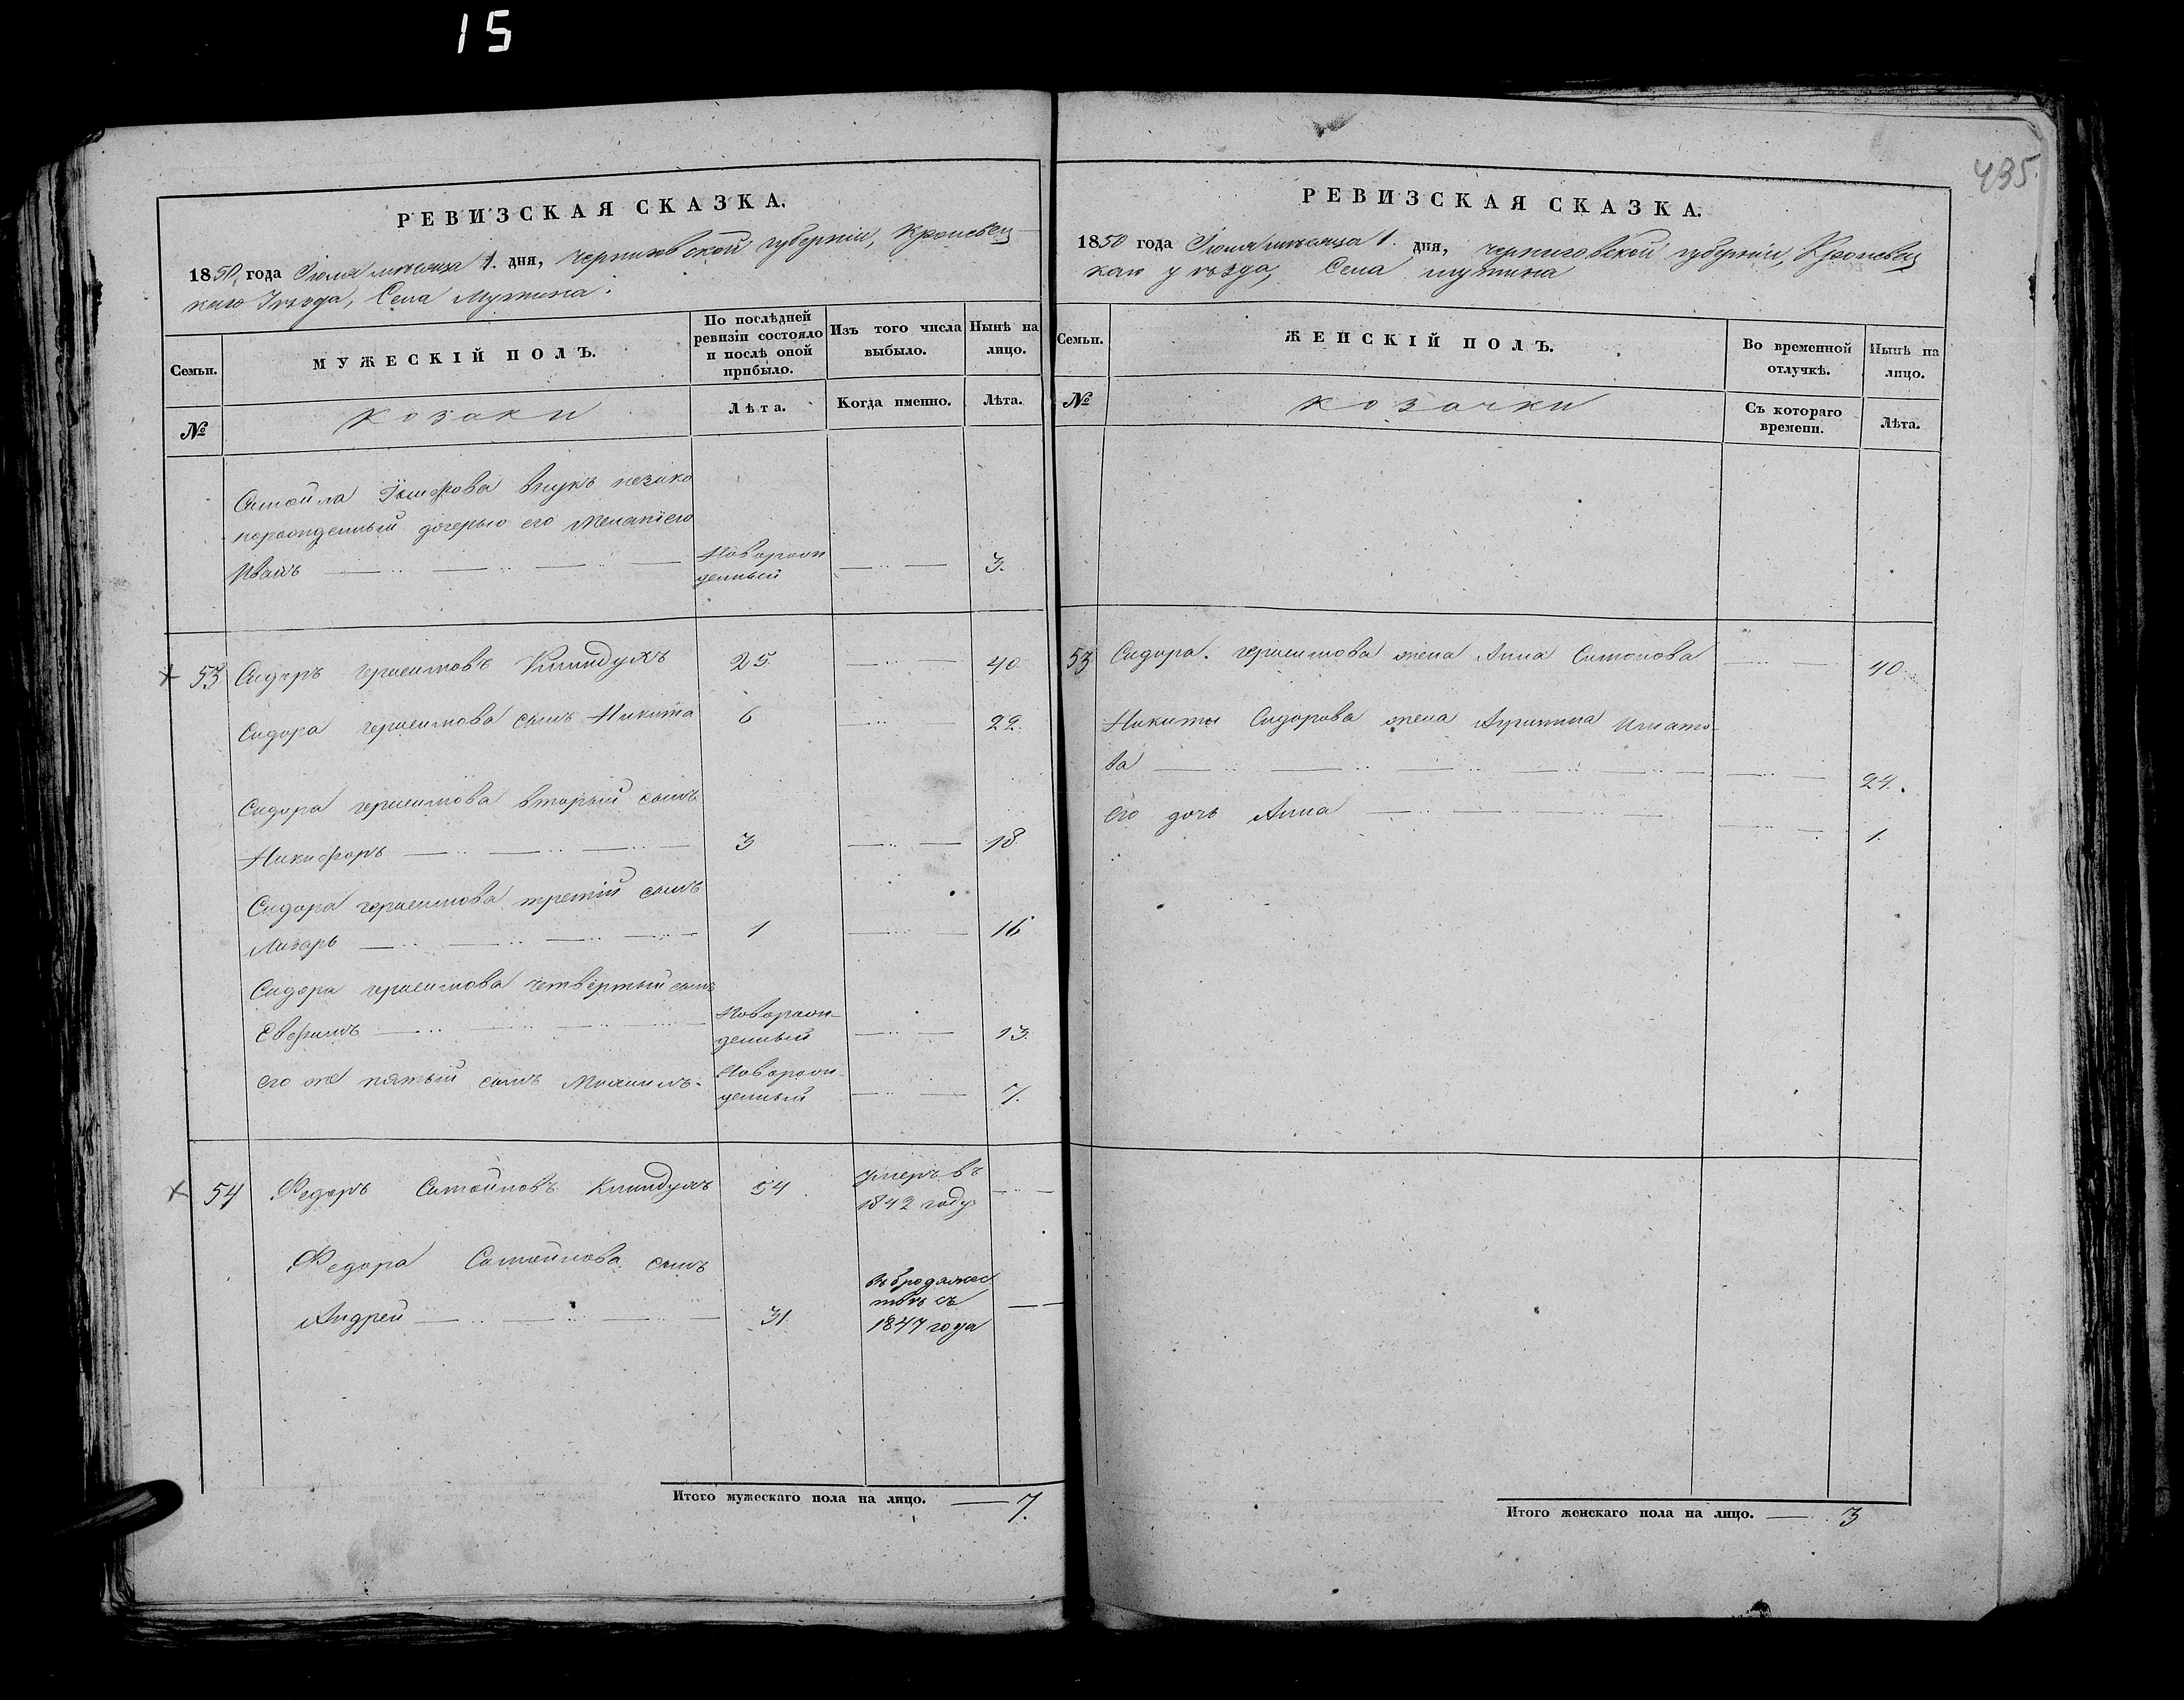 15
435.
РЕВИЗСКАЯ СКАЗКА.
1850 года Июля месяца 1. дня, Черниговской губерніи, Кролевец
каго Уѣзда, Села Мутина.
Семьи.
МУЖЕСКІЙ ПОЛЪ.
По послѣдней ревизіи состояло и послѣ оной прибыло.
Изъ того числа выбыло.
Нынѣ на лицо.
№
Козаки
Лѣта.
Когда именно.
Лѣта.
Самойла внукъ незако
норожденный дочерью его Меланіею
Иванъ Новорож денный 3.
53 Сидоръ Герасимовъ Клиндухъ 25. 40
Сидора Герасимова сынъ Никита 6 22.
Сидора Герасимова вторый сынъ
Никифоръ 3 18
Сидора Герасимова третій сынъ
Лазарь 1 16
Сидора Герасимова четвертый сынъ
Евфимъ Новорож- денный 13.
его же пятый сынъ Новорож- денный 7.
54 Федоръ Самойловъ Клиндухъ 54. умеръ въ 1842 году
Федора Самойлова сынъ
Андрей 31. въ бродяжес твѣ съ 1847 года
Итого мужескаго пола на лицо. 7.
РЕВИЗСКАЯ СКАЗКА.
1850 года Июля месяца 1. дня, Черниговской губерніи, Кролевец
каго уѣзда, Села Мутина
Семьи.
ЖЕНСКІЙ ПОЛЪ.
Во временной отлучкѣ.
Нынѣ на лицо.
№
Козачки
Съ котораго времени.
Лѣта.
53 Сидора Герасимова жена Анна Симонова 40
Никиты Сидорова жена Игнато-
ва 24.
его дочь Анна 1.
Итого женскаго пола на лицо. 3